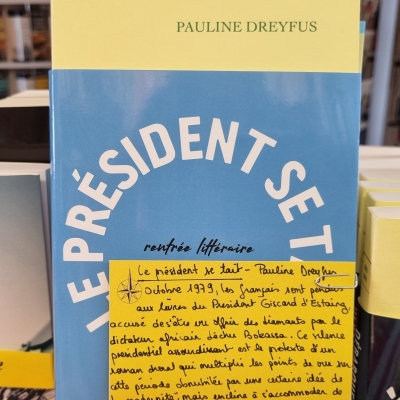 PAULINE DREYFUS
LE PRÉSIDENT SE T
rentrée littéraire
Le président se tait - Pauline Dreyfus
Octobre 1979, les français sont pendus
aux lèvres du Président Giscard d'Estaing
accusé de s'être vu offrir des diamants par le
dictateur africain déchu Bokassa. Ce silence
présidentiel assourdissant est le prétexte d'un
roman choral qui multiplie les points de vue sur
cette période obnubilée par une certaine idée de
modernité mais encline à s'accommoder de